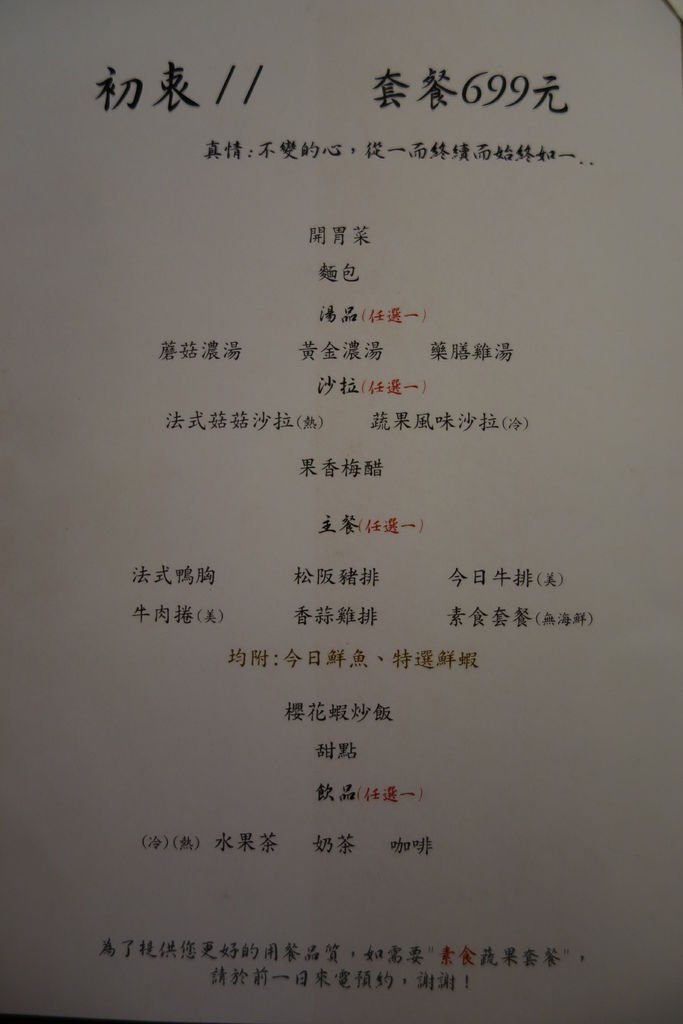 初衷 // 套餐699元
真情:不變的心，從一而終續而始終如一..
開胃菜
麵包
湯品(任選一)
蘑菇濃湯 黃金濃湯 藥膳雞湯
沙拉(任選一)
法式菇菇沙拉(熱) 蔬果風味沙拉(冷)
果香梅醋
主餐(任選一)
法式鴨胸 松阪豬排 今日牛排(美)
牛肉捲(美) 香蒜雞排 素食套餐(無海鮮)
均附:今日鮮魚、特選鮮蝦
櫻花蝦炒飯
甜點
飲品(任選一)
(冷)(熱) 水果茶 奶茶 咖啡
為了提供您更好的用餐品質，如需要"素食蔬果套餐"，
請於前一日來電預約，謝謝！